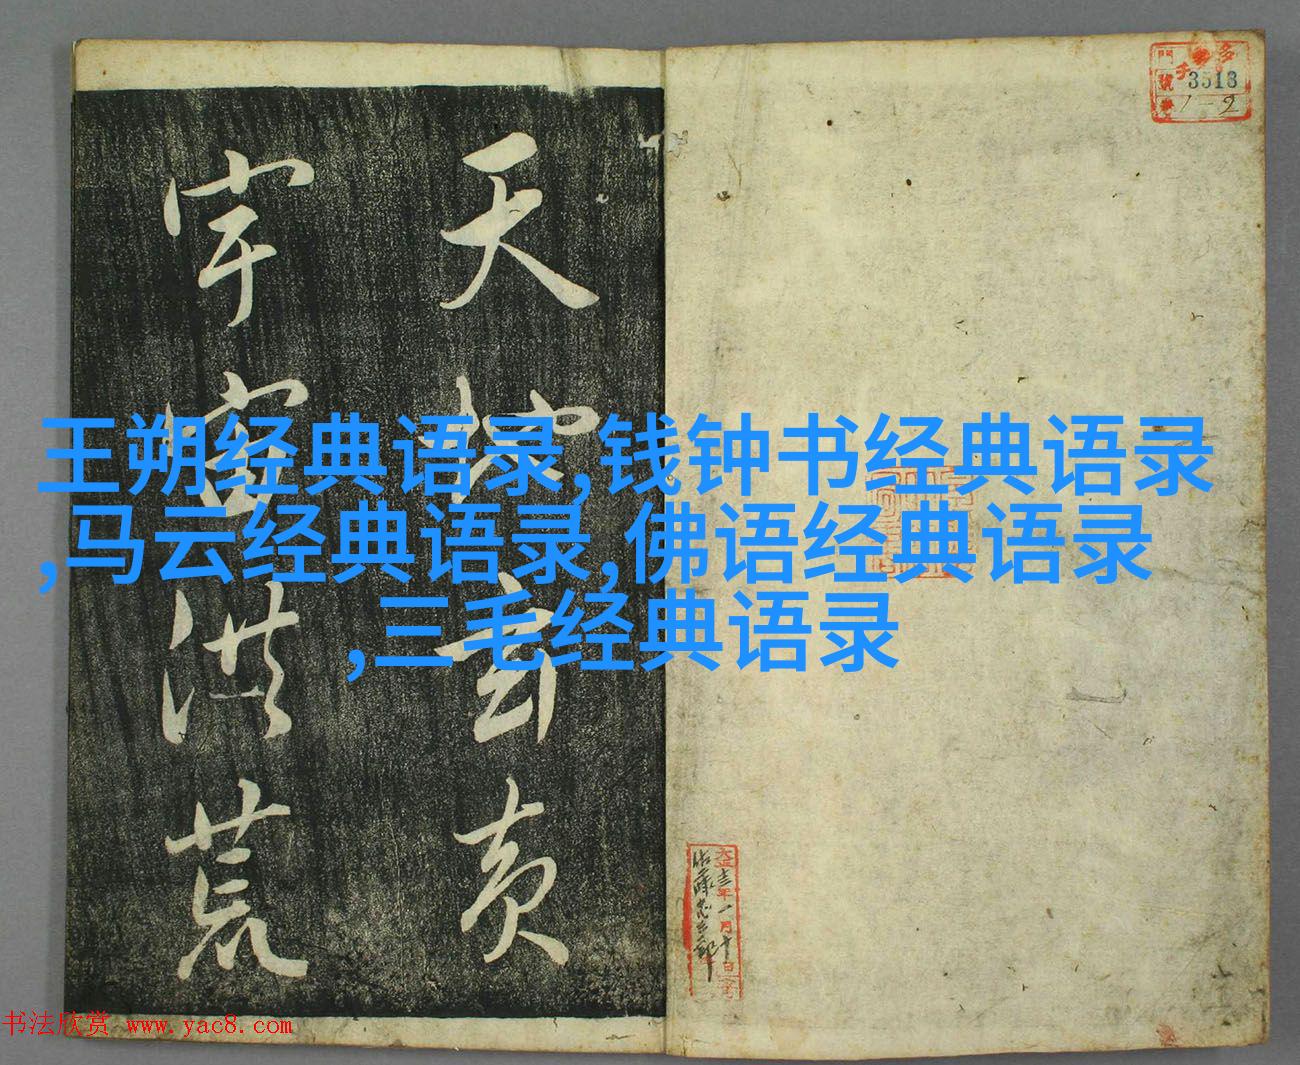 天地玄黄
宇宙洪荒
王朔经典语录,钱钟书经典语录
,马云经典语录,佛语经典语录
,三毛经典语录
3513
1-2
大正十三年一月十日
书法欣赏 www.yac8.com